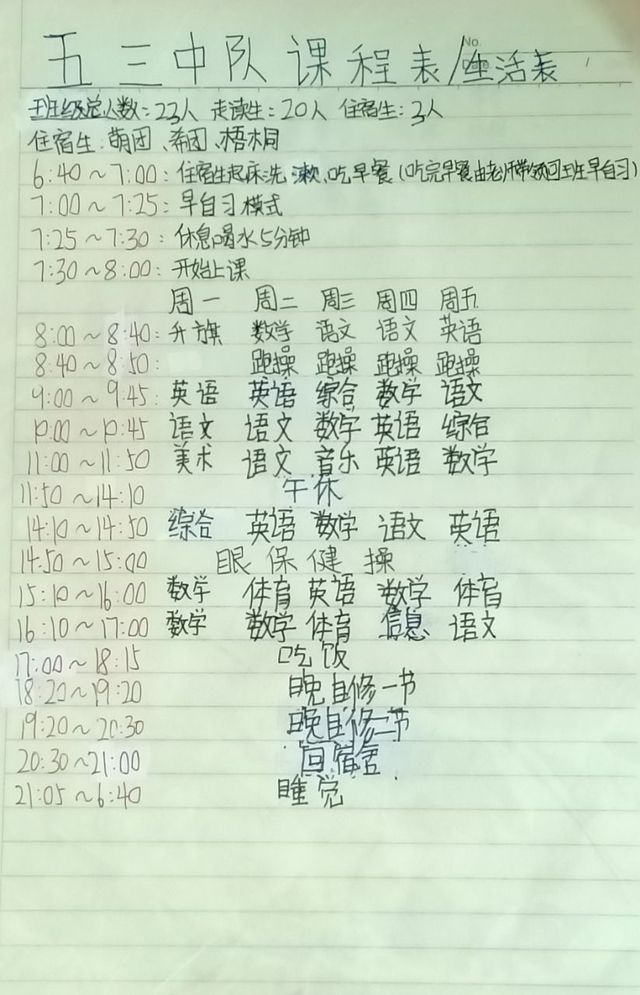 No.
五三中队课程表/生活表
班级总人数：23人 走读生：20人 住宿生：3人
住宿生：萌团、希团、梧桐
6:40～7:00：住宿生起床洗漱、吃早餐（吃完早餐由老师带领回班早自习）
7:00～7:25：早自习模式
7:25～7:30：休息喝水5分钟
7:30～8:00：开始上课
周一 周二 周三 周四 周五
8:00～8:40：升旗 数学 语文 语文 英语
8:40～8:50： 跑操 跑操 跑操 跑操
9:00～9:45：英语 英语 综合 数学 语文
10:00～10:45 语文 语文 数学 英语 综合
11:00～11:50 美术 语文 音乐 英语 数学
11:50～14:10 午休
14:10～14:50 综合 英语 数学 语文 英语
14:50～15:00 眼保健操
15:10～16:00 数学 体育 英语 数学 体育
16:10～17:00 数学 数学 体育 信息 语文
17:00～18:15 吃饭
18:20～19:20 晚自修一节
19:20～20:30 晚自修二节
20:30～21:00 回宿舍
21:05～6:40 睡觉